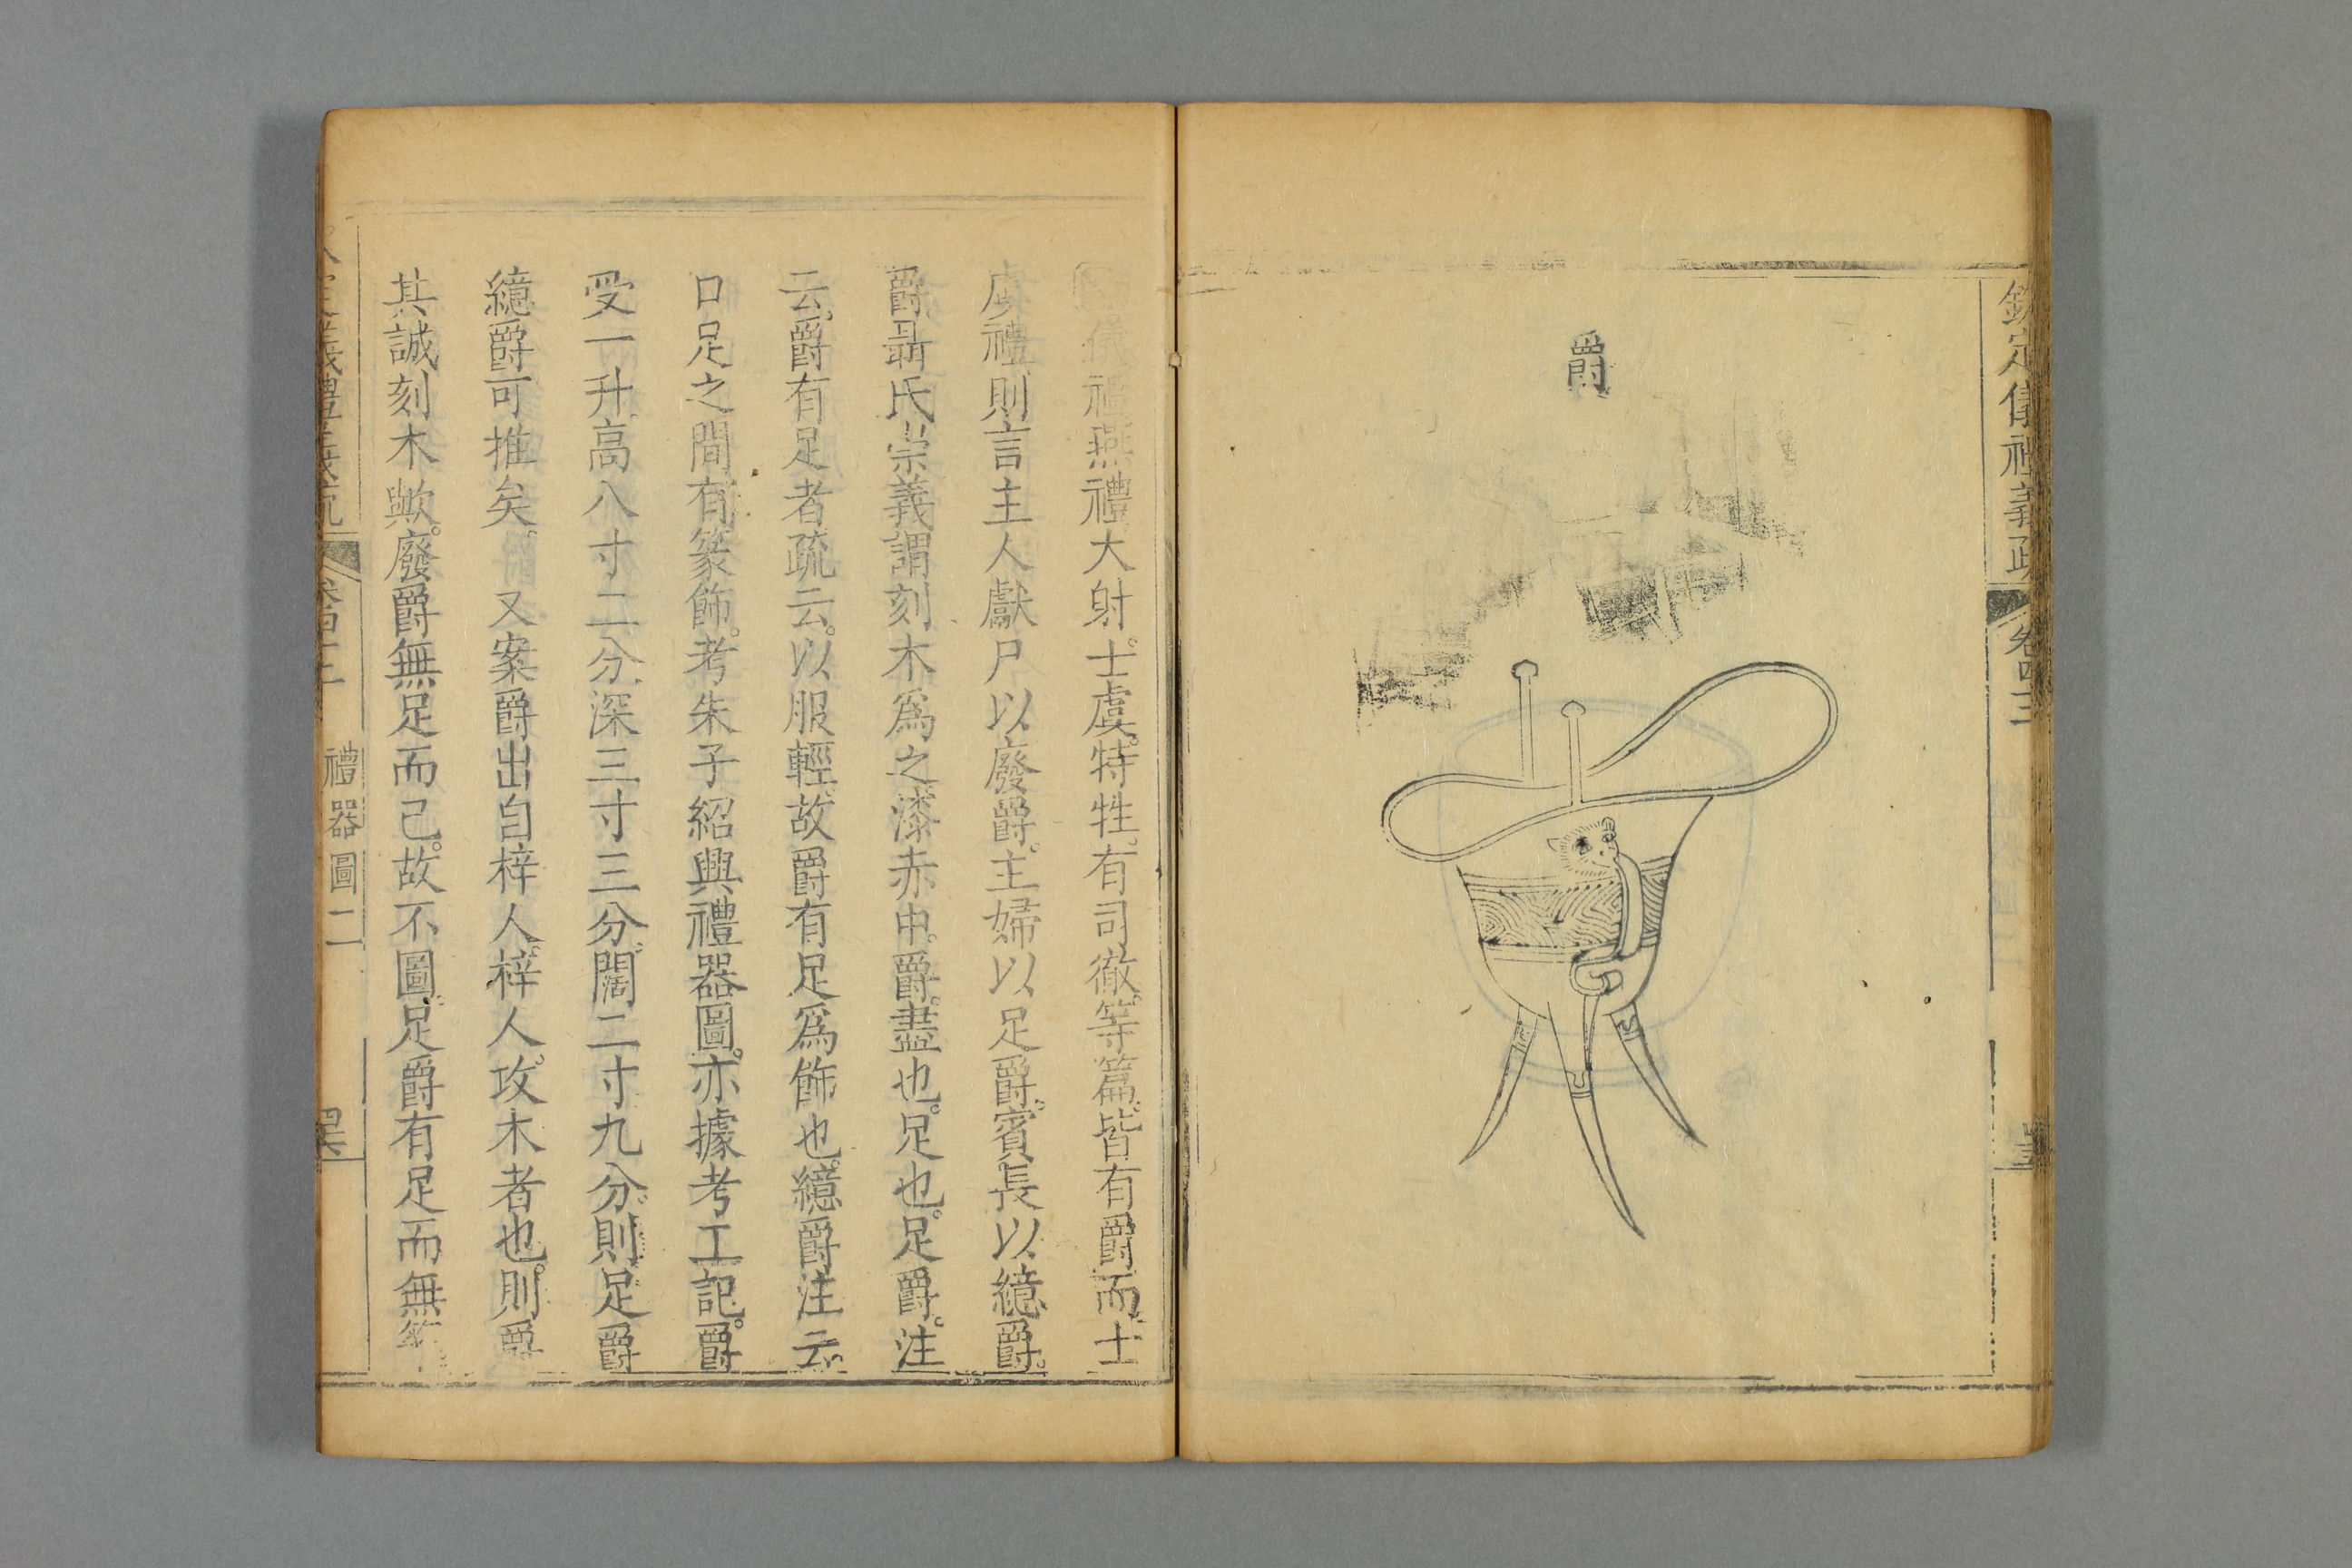 欽定儀禮義疏
爵
儀禮燕禮大射士虞特牲有司徹等篇皆有爵而士
虞禮則言主人獻尸以廢爵主婦以足爵賓長以繶爵
爵聶氏崇義謂刻木爲之漆赤中爵盡也足也足爵注
云爵有足者疏云以服輕故爵有足爲飾也繶爵注云
口足之間有篆飾考朱子紹興禮器圖亦據考工記爵
受一升高八寸二分深三寸三分闊二寸九分則足爵
繶爵可推矣又案爵出自梓人梓人攻木者也則爵
其誠刻木歟廢爵無足而已故不圖足爵有足而無
禮器圖二